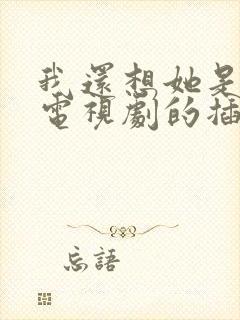 我還想她是
電視劇的插
忘語